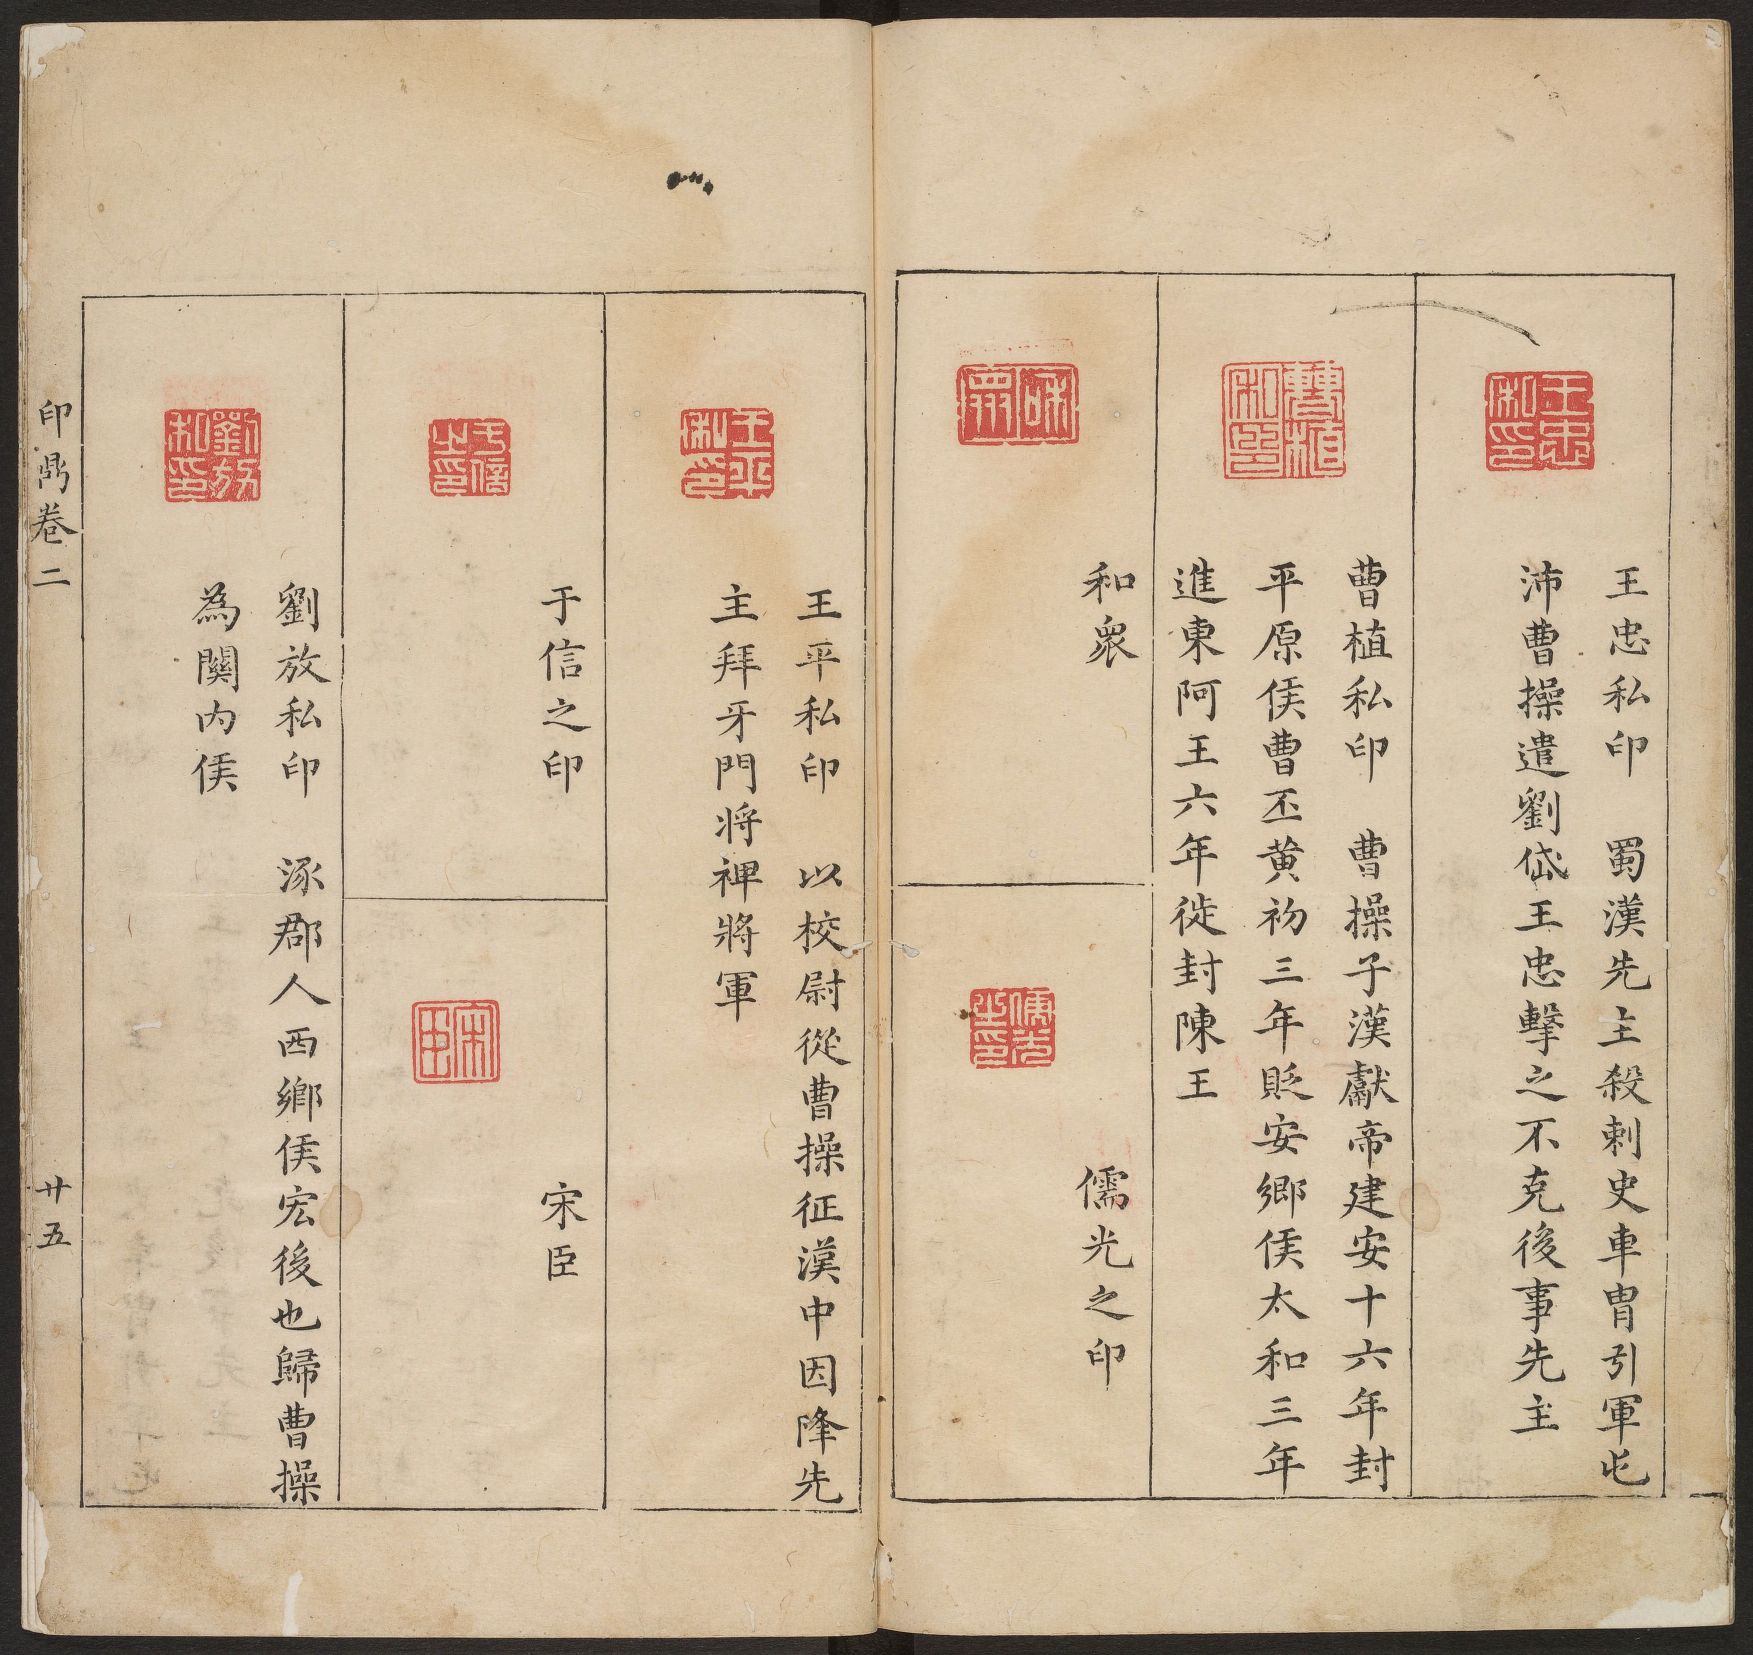 王忠私印　蜀漢先主殺刺史車冑引軍屯
沛曹操遣劉岱王忠擊之不克後事先主
曹植私印　曹操子漢獻帝建安十六年封
平原侯曹丕黃初三年貶安鄉侯太和三年
進東阿王六年徙封陳王
和衆
儒光之印
王平私印　以校尉從曹操征漢中因降先
主拜牙門將裨將軍
于信之印
宋臣
劉放私印　涿郡人西鄉侯宏後也歸曹操
為關内侯
印鼎卷二
廿五
王忠私印
曹植私印
和衆
儒光之印
王平私印
于信之印
宋臣
劉放私印